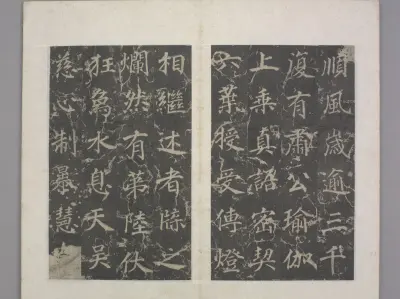 順風歲逾三千
復有肅公瑜伽
上乘真詔密契
六葉授受傳燈
相繼述者牒之
爛然有第陸伏
狂象水息天吳
慈心制暴慧